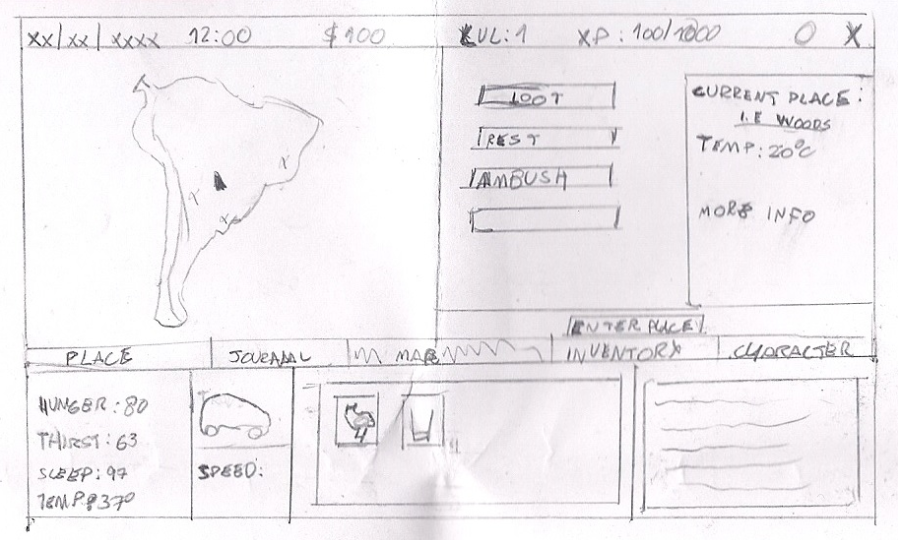 XX/XX/XXXX 12:00 $100 LVL:1 XP:100/1000 O X
LOOT
REST
AMBUSH
CURRENT PLACE:
I.E WOODS
TEMP:20°C
MORE INFO
ENTER PLACE
PLACE JOURNAL MAP INVENTORY CHARACTER
HUNGER:80
THIRST:63
SLEEP:97
TEMP:37°
SPEED:
4